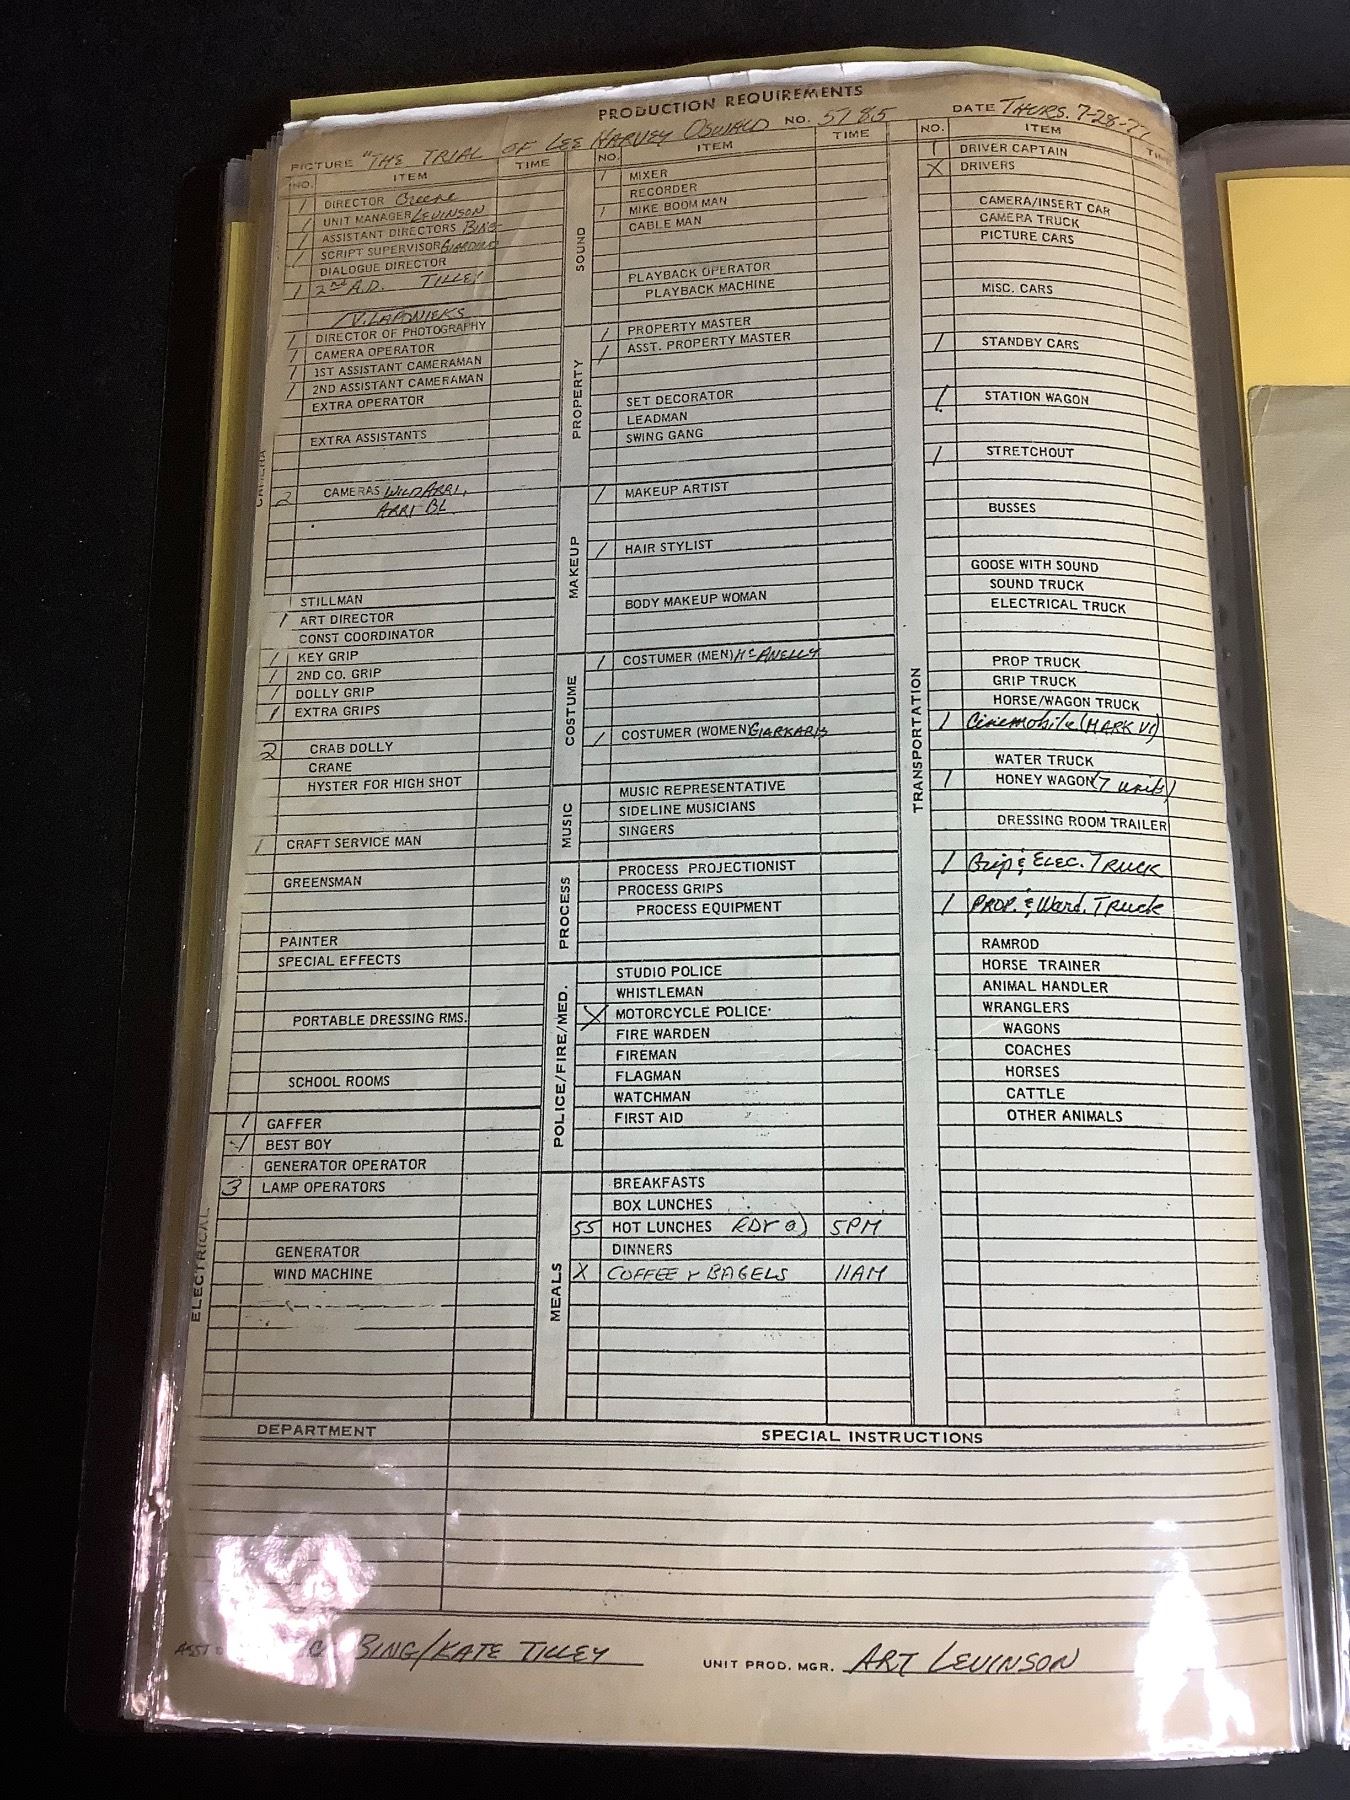 PRODUCTION REQUIREMENTS
PICTURE "THE TRIAL OF LEE HARVEY OSWALD NO. 5785 DATE THURS. 7-28-77
NO. ITEM TIME
1 DIRECTOR Greene
1 UNIT MANAGER LEVINSON
1 ASSISTANT DIRECTORS BING
1 SCRIPT SUPERVISOR
DIALOGUE DIRECTOR
1 2nd A.D. TILLEY
V. LAPONIEKS
1 DIRECTOR OF PHOTOGRAPHY
1 CAMERA OPERATOR
1 1ST ASSISTANT CAMERAMAN
1 2ND ASSISTANT CAMERAMAN
EXTRA OPERATOR
EXTRA ASSISTANTS
CAMERA
2 CAMERAS WILD ARRI,
ARRI BL
STILLMAN
1 ART DIRECTOR
CONST COORDINATOR
1 KEY GRIP
1 2ND CO. GRIP
1 DOLLY GRIP
1 EXTRA GRIPS
2 CRAB DOLLY
CRANE
HYSTER FOR HIGH SHOT
1 CRAFT SERVICE MAN
GREENSMAN
PAINTER
SPECIAL EFFECTS
PORTABLE DRESSING RMS.
SCHOOL ROOMS
ELECTRICAL
1 GAFFER
1 BEST BOY
GENERATOR OPERATOR
3 LAMP OPERATORS
GENERATOR
WIND MACHINE
NO. ITEM TIME
SOUND
1 MIXER
RECORDER
1 MIKE BOOM MAN
CABLE MAN
PLAYBACK OPERATOR
PLAYBACK MACHINE
PROPERTY
1 PROPERTY MASTER
1 ASST. PROPERTY MASTER
SET DECORATOR
LEADMAN
SWING GANG
MAKEUP
1 MAKEUP ARTIST
1 HAIR STYLIST
BODY MAKEUP WOMAN
COSTUME
1 COSTUMER (MEN) McANELLY
1 COSTUMER (WOMEN)
MUSIC
MUSIC REPRESENTATIVE
SIDELINE MUSICIANS
SINGERS
PROCESS
PROCESS PROJECTIONIST
PROCESS GRIPS
PROCESS EQUIPMENT
POLICE/FIRE/MED.
STUDIO POLICE
WHISTLEMAN
X MOTORCYCLE POLICE
FIRE WARDEN
FIREMAN
FLAGMAN
WATCHMAN
FIRST AID
MEALS
BREAKFASTS
BOX LUNCHES
55 HOT LUNCHES RDY @) 5PM
DINNERS
X COFFEE & BAGELS 11AM
NO. ITEM TIME
TRANSPORTATION
1 DRIVER CAPTAIN
X DRIVERS
CAMERA/INSERT CAR
CAMERA TRUCK
PICTURE CARS
MISC. CARS
1 STANDBY CARS
1 STATION WAGON
1 STRETCHOUT
BUSSES
GOOSE WITH SOUND
SOUND TRUCK
ELECTRICAL TRUCK
PROP TRUCK
GRIP TRUCK
HORSE/WAGON TRUCK
1 Cinemobile (MARK VI)
WATER TRUCK
1 HONEY WAGON (7 units)
DRESSING ROOM TRAILER
1 Grip & ELEC. TRUCK
1 PROP. & Ward. Truck
RAMROD
HORSE TRAINER
ANIMAL HANDLER
WRANGLERS
WAGONS
COACHES
HORSES
CATTLE
OTHER ANIMALS
DEPARTMENT SPECIAL INSTRUCTIONS
BING/KATE TILLEY UNIT PROD. MGR. ART LEVINSON